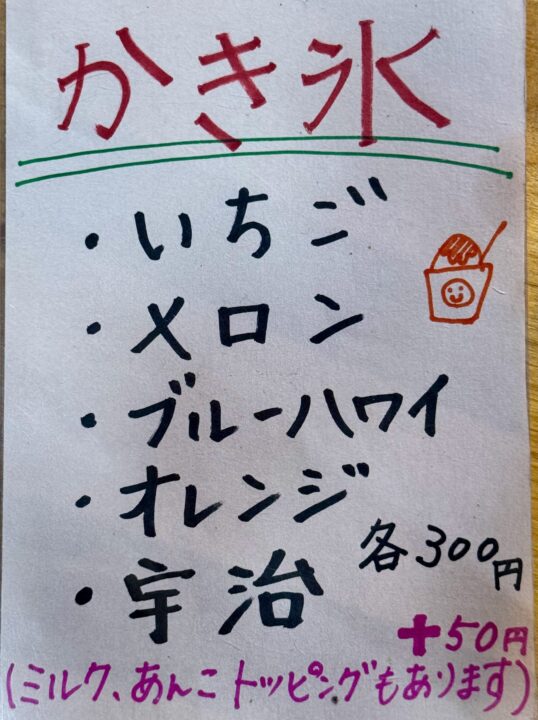 かき氷
・いちご
・メロン
・ブルーハワイ
・オレンジ
・宇治
各300円
+50円
(ミルク、あんこトッピングもあります)